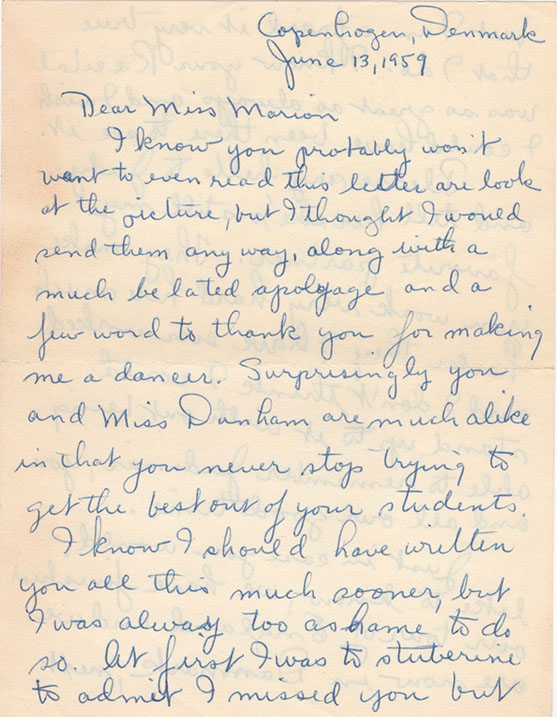 Copenhagen, Denmark
June 13, 1959
Dear Miss Marion
I know you probably won't
want to even read this letter are look
at the picture, but I thought I would
send them any way, along with a
much be lated apolgage and a
few word to thank you for making
me a dancer. Surprisingly you
and Miss Dunham are much alike
in that you never stop trying to
get the best out of your students.
I know I should have written
you all this much sooner, but
I was alway too ashame to do
so. At first I was to stuberine
to admit I missed you but